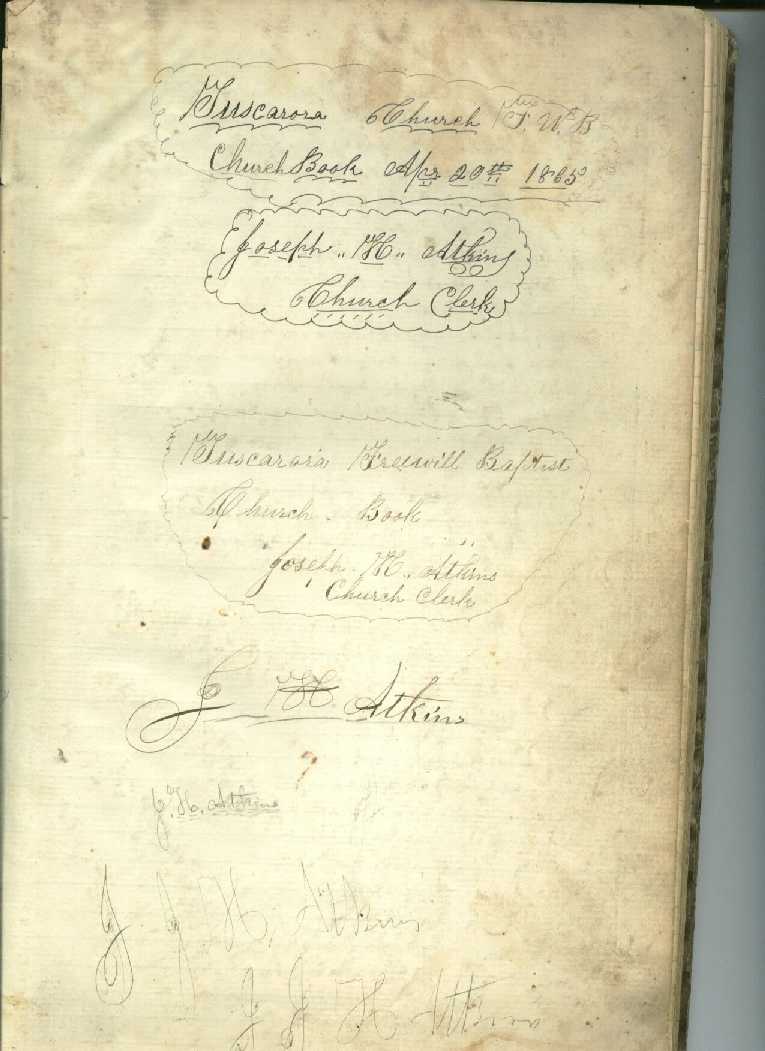 Tuscarora Church F. W. B
Church Book Apr 20th 1865
Joseph "H" Atkins
Church Clerk
Tuscarora Freewill Baptist
Church Book
Joseph H. Atkins
Church Clerk
J H. Atkins
J. H. Atkins
J J H. Atkins
J J H Atkins